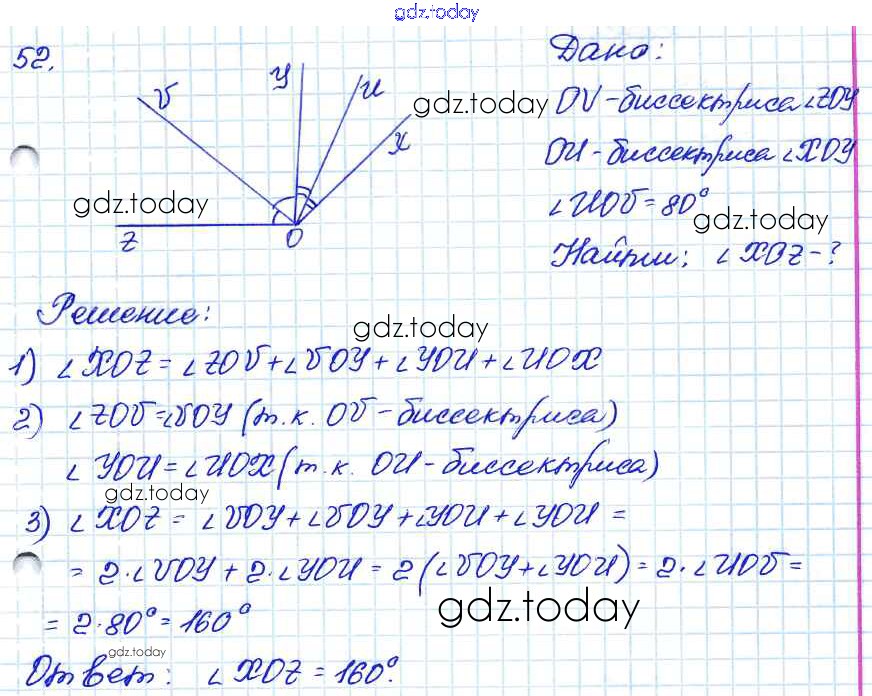 gdz.today
52.
Дано:
V
У
U
X
gdz.today
OV - биссектриса ∠ZOY
OU - биссектриса ∠XOY
gdz.today
∠UOV = 80°
gdz.today
Z
O
Найти: ∠XOZ - ?
Решение:
gdz.today
1) ∠XOZ = ∠ZOV + ∠VOY + ∠YOU + ∠UOX
2) ∠ZOV = ∠VOY (т.к. OV - биссектриса)
∠YOU = ∠UOX (т.к. OU - биссектриса)
gdz.today
3) ∠XOZ = ∠VOY + ∠VOY + ∠YOU + ∠YOU =
= 2·∠VOY + 2·∠YOU = 2(∠VOY + ∠YOU) = 2·∠UOV =
= 2·80° = 160°
gdz.today
gdz.today
Ответ: ∠XOZ = 160°.